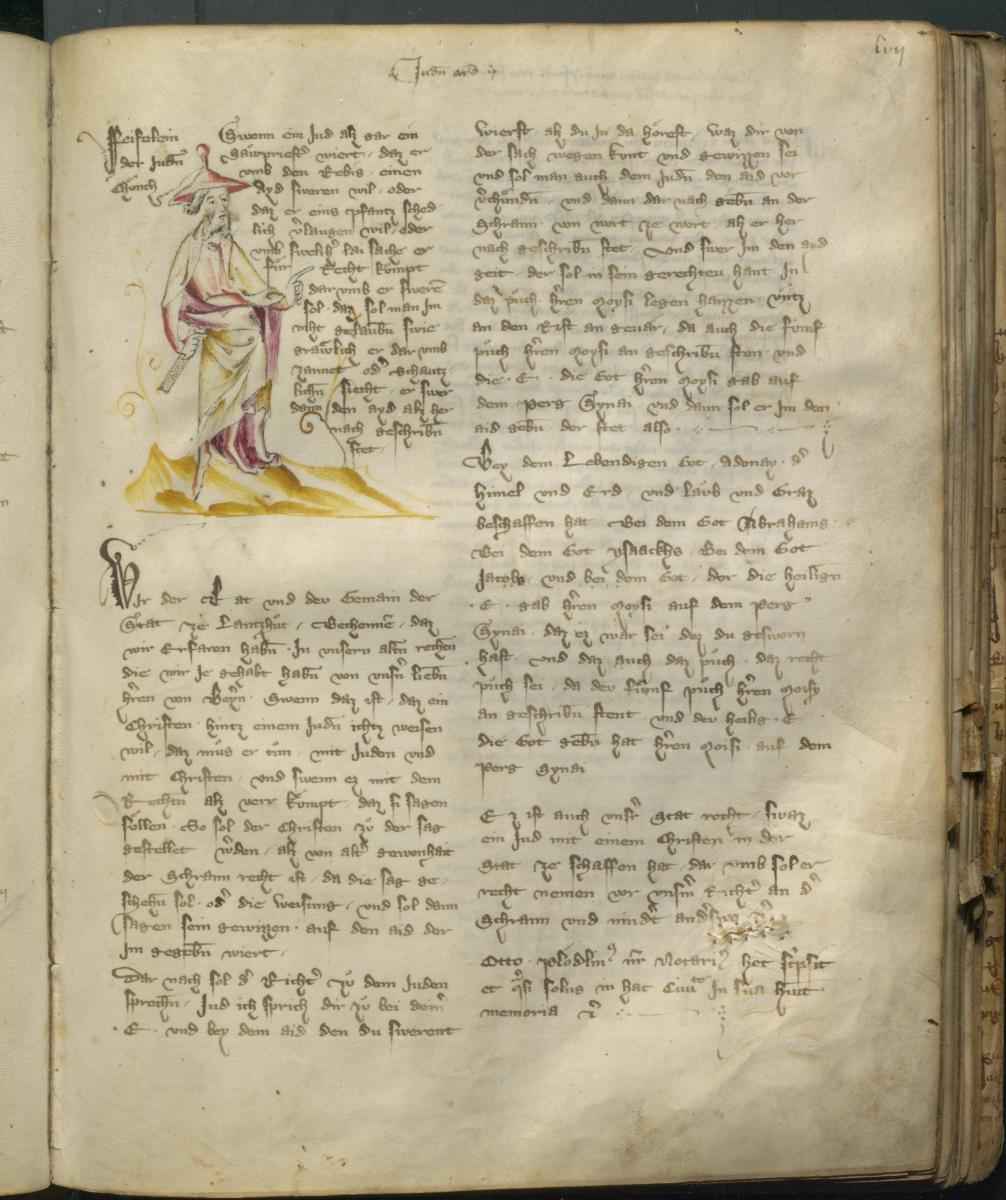 lvij
Judn ord
Feiferlein
der Judn
Chünch
Swenn ein Jud alz gar ein
wiert, daz er
vmb den Rebis einen
Ayd sweren wil, oder
daz er eins pfantz sched
lich v͛laugen wil, oder
vmb swelich lai sache er
für Recht kömpt
dar vmb er swerē
sol, daz sol man im
niht gelaubn swie
gräwlich er dar vmb
zannet, od͛ schautz
lichn siecht, er swer
dann den ayd alz her
nach geschribn̄
stet.
Wir der Rat vnd der Gemain der
Stat ze Lantzhůt, Bechennē, daz
wir Erfaren habn̄. In vnsern altn̄ rechtn̄
die wir Je gehabt habn̄ von vnsn̄ liebn̄
h͛ren von Beyrn̄. Swenn daz ist, daz ein
Christen hintz einem Judn̄ ichtz weisen
wil, daz můs er tůn, mit Juden vnd
mit Christen, vnd swenn ez mit dem
Rechtn̄ alz verr kömpt, daz si sagen
söllen. So sol der Christen zů der sag
gestellet w͛den, alz von alt͛ gewonhait
der Schrann recht ist, da die sag ge,
schehn̄ sol, od͛ die weisung, vnd sol dann
sagen sein gewizzen auf den aid der
Im gegebn̄ wiert.
Dar nach sol d͛ Richt͛ zů dem Juden
sprechn̄, Jud ich sprich dir zů bei deinr͛
E. vnd bey dem aid den du swerent
wierst, alz du In da hörest, waz dir von
der sach wegen kunt vnd gewizzen sei
vnd sol man auch dem Judn̄ den aid vor
v͛chündn̄, vnd dann dar nach gebn̄ an der
Schrann von wort ze wort, alz er her
nach geschribn̄ stet, Vnd swer Im den ayd
geit, der sol in sein gerechten hant In
daz půch h͛ren Moysi legen haizzen, vntz
an den Rist an geuär, da auch die fünf
půch h͛ren Moysi an geschribn̄ sten, vnd
die .E. die Got h͛ren Moysi gab auf
dem perg Synai, vnd dann sol er Im den
aid gebn̄, der stet also
Bey dem Lebendigen Got, Adonay, d͛
himel vnd Erd, vnd laub vnd Graz
beschaffen hat, Bei dem Got Abrahams
Bei dem Got ysaackhs, Bei dem Got
Jacobs, vnd bei dem Got, der die heilign̄
.E. gab h͛ren Moysi auf dem perg
Synai, daz ez war sei dez du gesworn
hast, vnd daz auch daz půch, daz recht
půch sei, da der fümf půch h͛ren Moisy
an geschribn̄ stent, vnd der heilig .E
die Got gebn̄ hat h͛ren Moisi auf dem
perg Synai
Ez ist auch vnsr͛ Stat recht, swaz
ein Jud mit einem Christen in der
Stat ze schaffen hat, dar vmb sol er
recht nemen vor vnsm̄ Richt͛ an d͛
Schrann vnd nindr̄t
Otto Notari⁹ hec scripsit
et solus in hac Ciui In sua
memoria